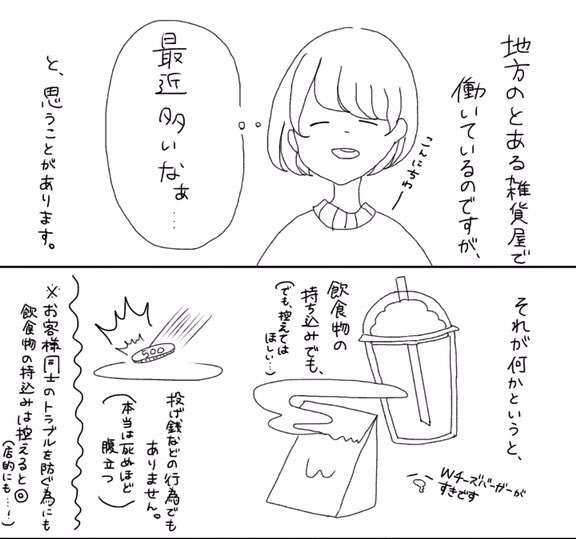 地方のとある雑貨屋で
働いているのですが、
こんにちわー
最近多いなぁ…
と、思うことがあります。
それが何かというと、
W
Wチーズバーガーが
すきです
飲食物の
持ち込みでも、
(でも、控えては
ほしい…)
500
投げ銭などの行為でも
ありません。
(本当は死ぬほど
腹立つ)
※お客様同士のトラブルを防ぐ為にも
飲食物の持込みは控えると◎
(店的にも…!)